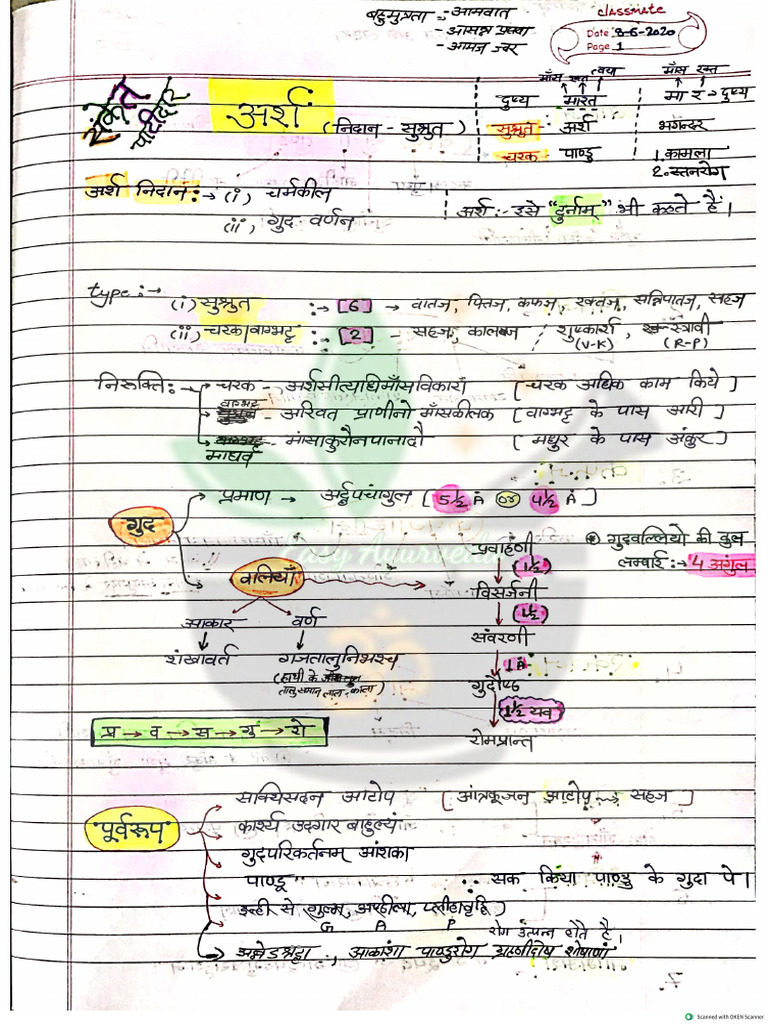 बहुमुत्रता :- आमवात
- आसन्न प्रसवा
- आमज ज्वर
classmate
Date 8-6-2020
Page 1
संकेत पाटीदार
अर्श
(निदान - सुश्रुत)
माँस रक्त त्वचा
माँस रक्त
दुष्य मारत मार → दुष्य
सुश्रुत - अर्श भगन्दर
चरक - पाण्डु 1. कामला
2. स्तनरोग
अर्श निदान :→ (i) चर्मकील
(ii) गुद वर्णन
अर्श :- इसे "दुर्नाम्" भी कहते हैं।
type :→
(i) सुश्रुत :→ 6 → वातज, पित्तज, कफज, रक्तज, सन्निपातज, सहज
(ii) चरक/वाग्भट्ट :→ 2 - सहज, कालज / शुष्कार्श, स्त्रावी
(V-K) (R-P)
निरुक्ति :→ चरक - अर्शसीत्याधिमाँसविकारा [चरक अधिक काम किये]
वाग्भट्ट - अरिवत प्राणीनो माँसकीलक [वाग्भट्ट के पास आरी]
माधव - मांसाकुरौनपानादौ [मधुर के पास अंकुर]
गुद
प्रमाण → अर्द्धपचांगुल [5½ Å or 4½ Å]
वलियाँ
प्रवाहणी
(1½)
विसर्जनी
(1½)
संवरणी
1Å
गुदौष्ठ
1½ यव
रोमप्रान्त
* गुदवल्लियो की कुल
लम्बाई :→ 4 अंगुल
आकार वर्ण
शंखावर्त गजतालुनिभश्च
(हाथी के तालु समान लाल-काला)
प्र → व → स → गु → रो
पूर्वरूप
सक्थिसदन आटोप [आंत्रकूजन आटोप → सहज]
कार्श्य उदगार बाहुल्यं
गुदपरिकर्तनम् आंशका
पाण्डू ∴ सक किया पाण्डु के गुदा पे।
इन्ही से गुल्म, अष्ठीला, प्लीहावृद्धि)
G A P रोग उत्पन्न होते हैं,
अन्नेडश्रद्धा :, आकांशा पाण्डुरोग ग्रहणीदोष शोषाणां
Easy Ayurveda
Scanned with OKEN Scanner